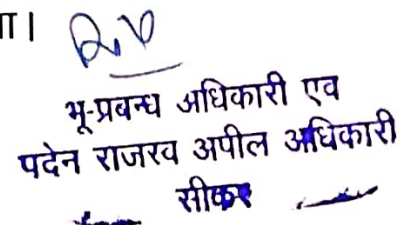 ा।
भू-प्रबन्ध अधिकारी एव
पदेन राजरव अपील अधिकारी
सीकर